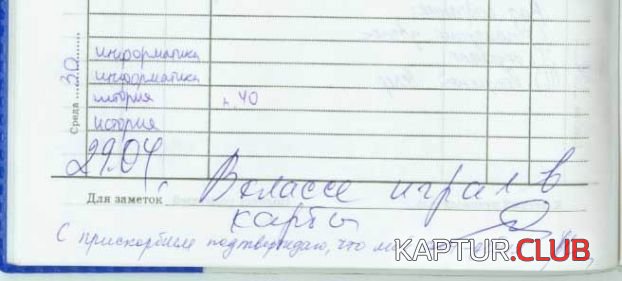 Среда 30
информатика
информатика
история п. 40
история
29.04. В классе играл в
Для заметок
карты
С прискорбием подтверждаю, что
KAPTUR.CLUB